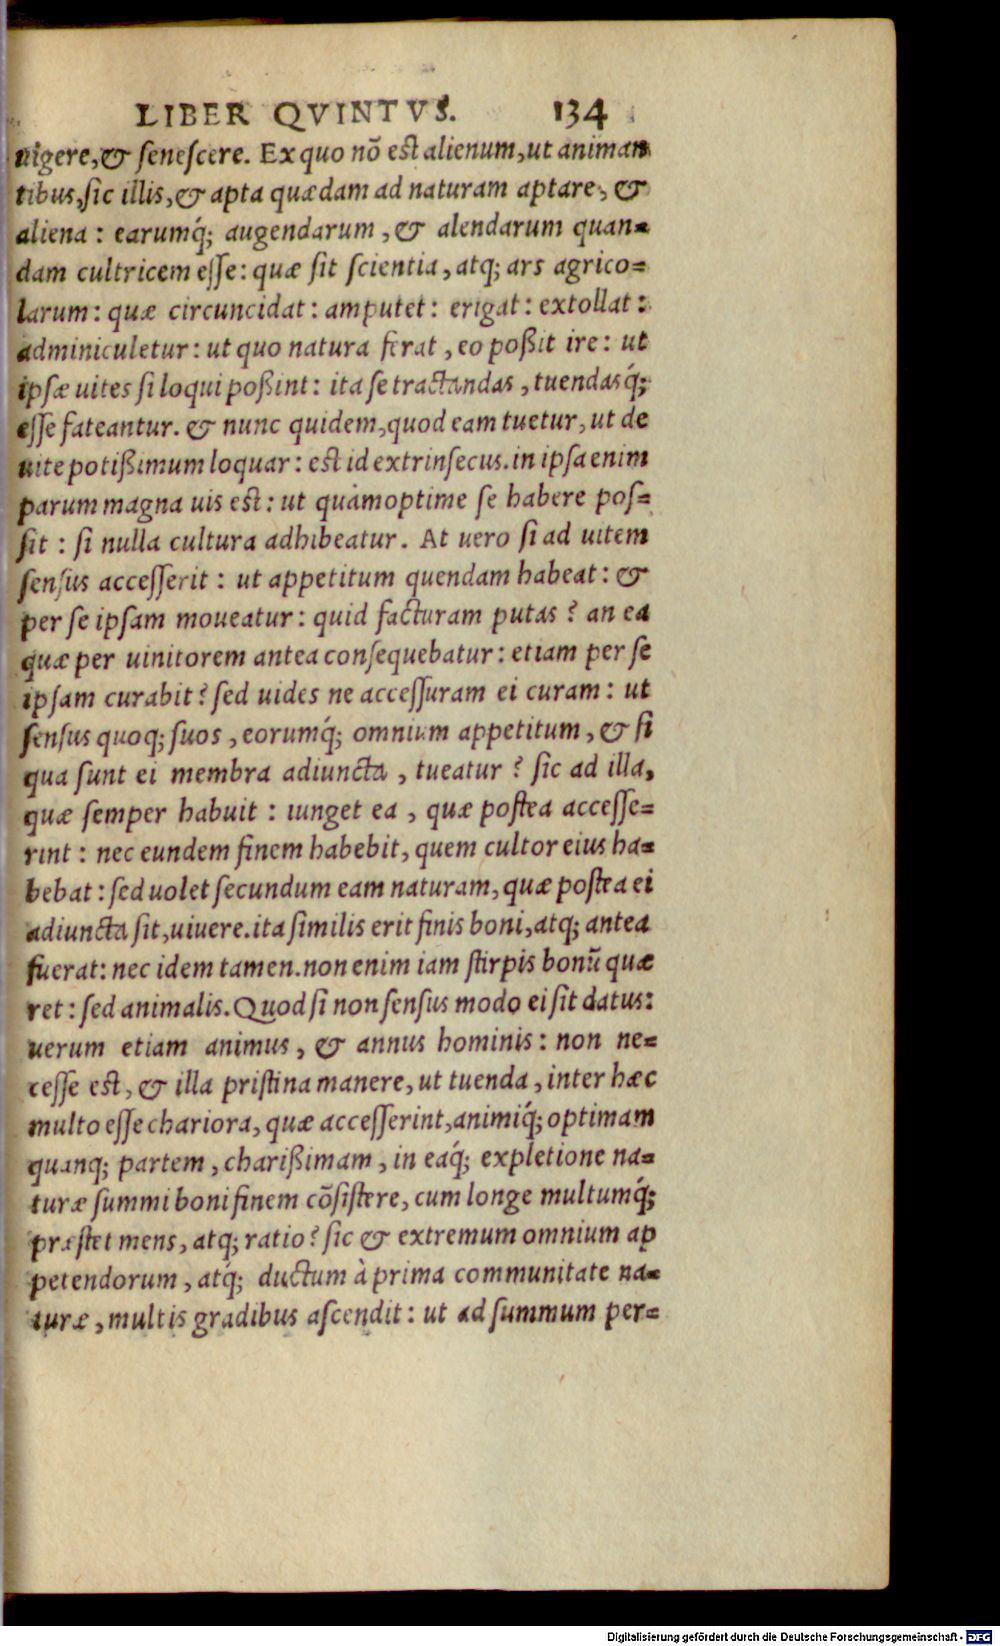 LIBER QVINTVS. 134
uigere,& ſeneſcere. Ex quo nõ eſt alienum,ut animan
tibus,ſic illis,& apta quædam ad naturam aptare, &
aliena: earumq́; augendarum, & alendarum quan=
dam cultricem eſſe: quæ ſit ſcientia, atq; ars agrico=
larum: quæ circuncidat: amputet: erigat: extollat:
adminiculetur: ut quo natura ferat, eo poßit ire: ut
ipſæ uites ſi loqui poßint: ita ſe tractandas, tuendasq́;
eſſe fateantur. & nunc quidem,quod eam tuetur, ut de
uite potißimum loquar: eſt id extrinſecus. in ipſa enim
parum magna uis eſt: ut quàmoptime ſe habere poſ=
ſit: ſi nulla cultura adhibeatur. At uero ſi ad uitem
ſenſus acceſſerit: ut appetitum quendam habeat: &
per ſe ipſam moueatur: quid facturam putas? an ea
quæ per uinitorem antea conſequebatur: etiam per ſe
ipſam curabit? ſed uides ne acceſſuram ei curam: ut
ſenſus quoq; ſuos, eorumq́; omnium appetitum, & ſi
qua ſunt ei membra adiuncta, tueatur? ſic ad illa,
quæ ſemper habuit: iunget ea, quæ poſtea acceſſe=
rint: nec eundem finem habebit, quem cultor eius ha=
bebat: ſed uolet ſecundum eam naturam, quæ poſtea ei
adiuncta ſit, uiuere. ita ſimilis erit finis boni, atq; antea
fuerat: nec idem tamen. non enim iam ſtirpis bonũ quæ
ret: ſed animalis. Quod ſi non ſenſus modo ei ſit datus:
uerum etiam animus, & annus hominis: non ne=
ceſſe eſt, & illa priſtina manere, ut tuenda, inter hæc
multo eſſe chariora, quæ acceſſerint,animiq́; optimam
quanq; partem, charißimam, in eaq́; expletione na=
turæ ſummi boni finem cõſiſtere, cum longe multumq́;
præſtet mens, atq; ratio? ſic & extremum omnium ap
petendorum, atq́; ductum à prima communitate na=
turæ, multis gradibus aſcendit: ut ad ſummum per=
Digitalisierung gefördert durch die Deutsche Forschungsgemeinschaft - DFG